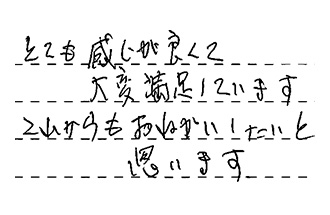 とても感じが良くて
大変満足しています
これからもおねがいしたいと
思います